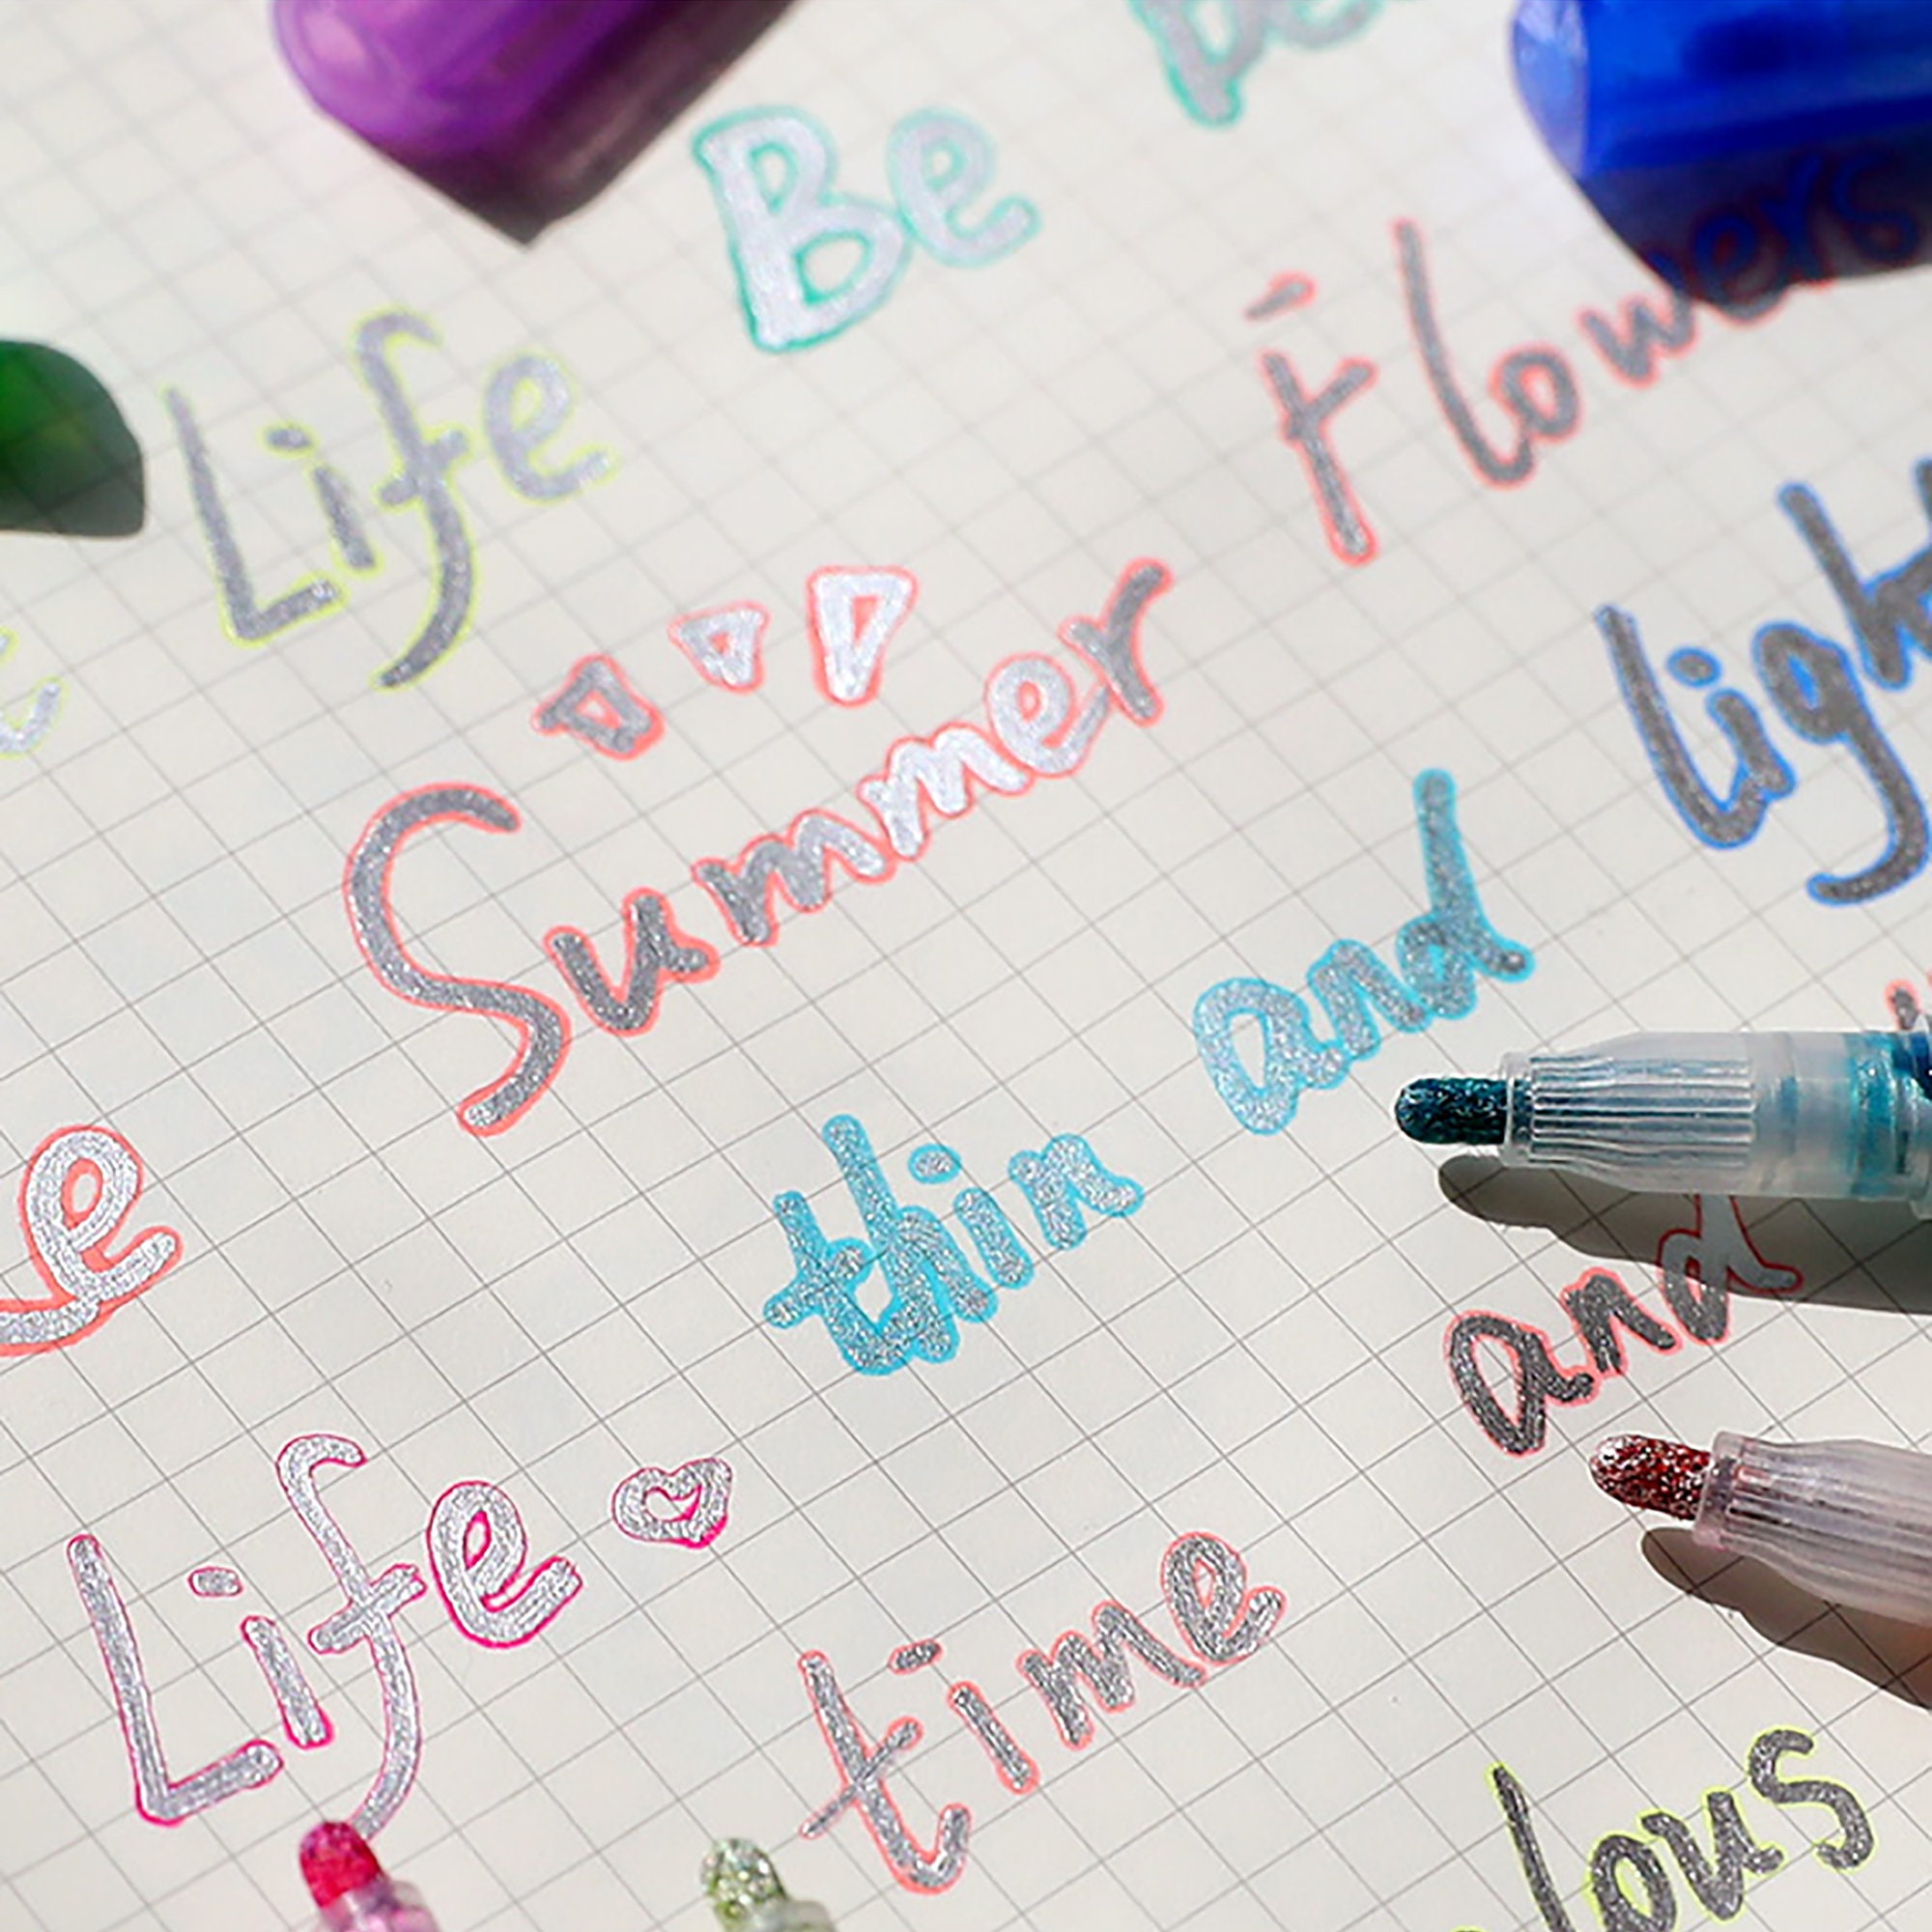 Be
Life
Flowers
Summer
light
and
thin
and
Life
time